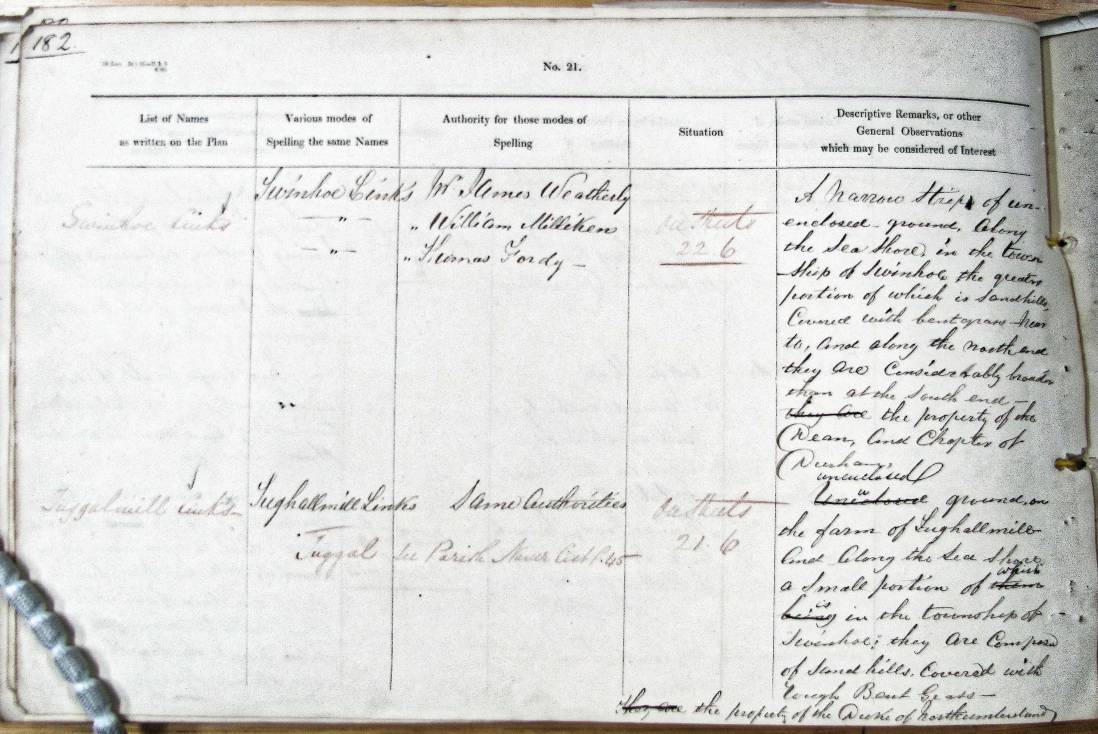 182.
No. 21.
List of Names
as written on the Plan
Various modes of
Spelling the same Names
Authority for those modes of
Spelling
Situation
Descriptive Remarks, or other
General Observations
which may be considered of Interest
Swinhoe Links
Swinhoe Links
"
"
Wr. James Weatherly
" William Milliken
" Thomas Fordy
22.6
A Narrow Strip of un-
enclosed ground, along
the Sea Shore, in the town
ship of Swinhoe the greater
portion of which is Sandhills,
Covered with bentgrass Near
to, and along the north end
they are Considerably broader
than at the South end —
they are the property of the
Dean, and Chapter of
Durham,
"
Tuggalmill Links
Tughallmill Links
Same authorities
21.6
Tuggal see Parish Name
unenclosed
ground, on
the farm of Tughallmill
and along the Sea Shore
which
a Small portion of them
is
being in the township of
Swinhoe; they are Compose
of Sand hills. Covered with
tough Bent Grass —
They are the property of the Duke of Northumberland